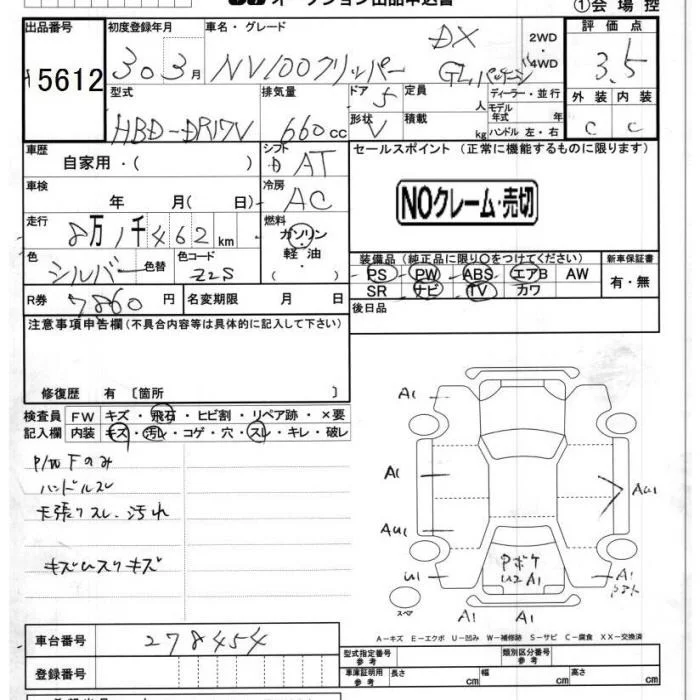 オークション出品申込書
①会場控
出品番号
15612
初度登録年月
30 3月
車名・グレード
NV100クリッパー
DX
GLパッケージ
2WD・4WD
評価点
3.5
型式
HBD-DR17V
排気量
660cc
ドア 5
定員 人
ディーラー・並行
モデル年式 年
形状 V
積載 kg
ハンドル 左・右
外装 内装
C C
車歴
自家用・( )
シフト
AT
セールスポイント (正常に機能するものに限ります)
NOクレーム・売切
車検
年 月( 日)
冷房
AC
走行
8万1千462km
燃料
ガソリン・軽油
( )
色
シルバー
色替
色コード
Z2S
装備品(純正品に限り○をつけてください)
新車保証書
PS PW ABS エアB AW
SR ナビ TV カワ
有・無
R券 7860円
名変期限 月 日
後日品
注意事項申告欄(不具合内容等は具体的に記入して下さい)
修復歴 有〔箇所 〕
検査員記入欄
FW キズ・飛石・ヒビ割・リペア跡・×要
内装 キズ・汚レ・コゲ・穴・スレ・キレ・破レ
P/W Fのみ
ハンドルスレ
天張りスレ・汚れ
キズU・スリキズ
A1
A1
AU1
U1
AU1
A1
Pボケ
U2 A1
A1 A1
スペア
A-キズ E-エクボ U-凹み W-補修跡 S-サビ C-腐食 XX-交換済
車台番号
278454
登録番号
型式指定番号 参考
類別区分番号 参考
車庫証明用 参考
長さ cm
幅 cm
高さ cm